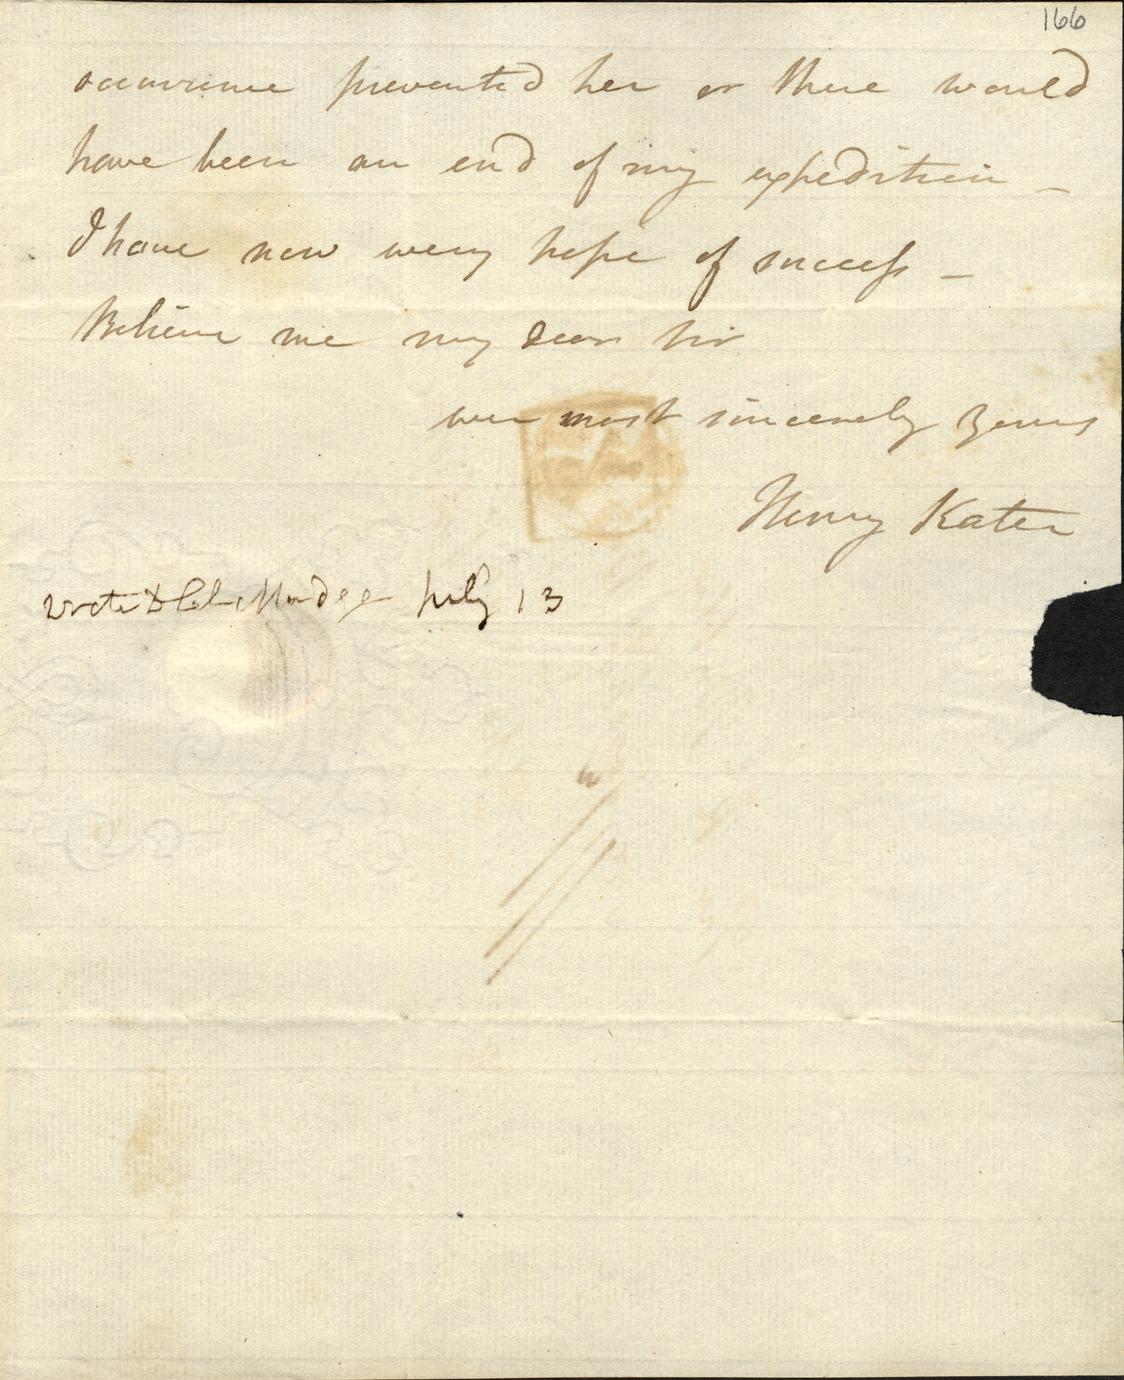 166
occurrence prevented her or there would
have been an end of my expedition –
I have now every hope of success –
Believe me my dear Sir
ever most sincerely Yours
Henry Kater
wrote to Col. Mudge July 13